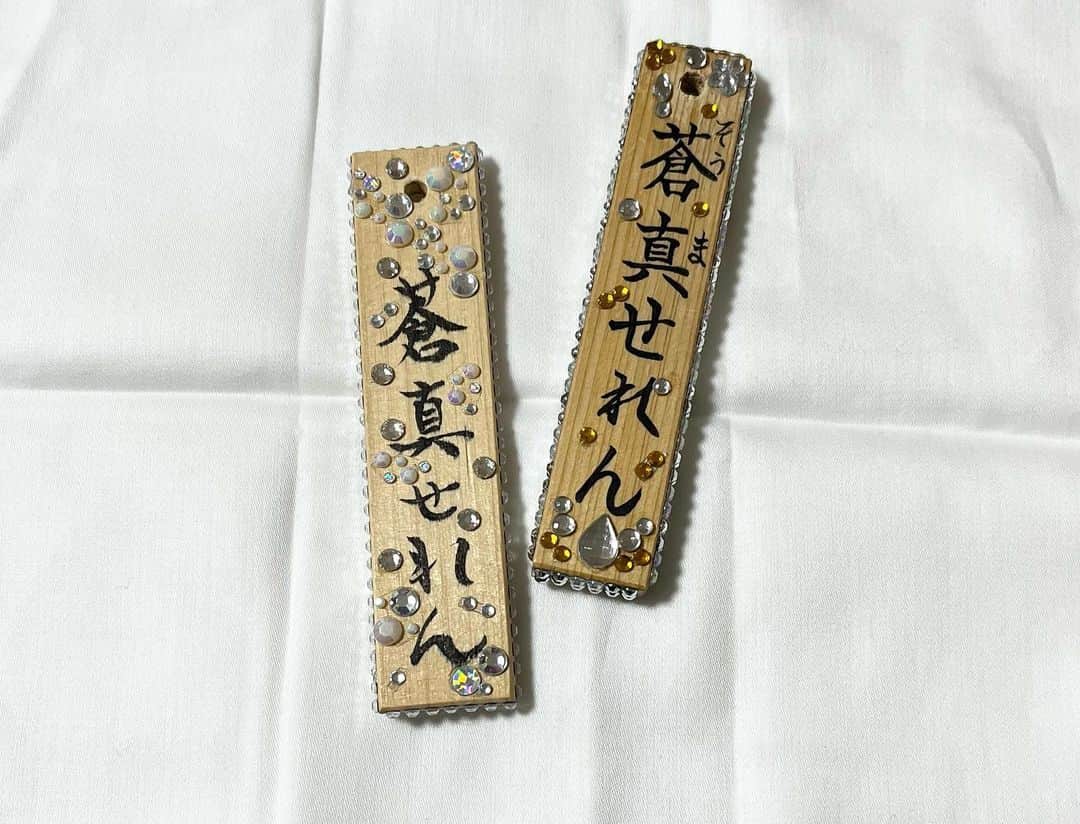 蒼真せれん
蒼真せれん
そう
ま